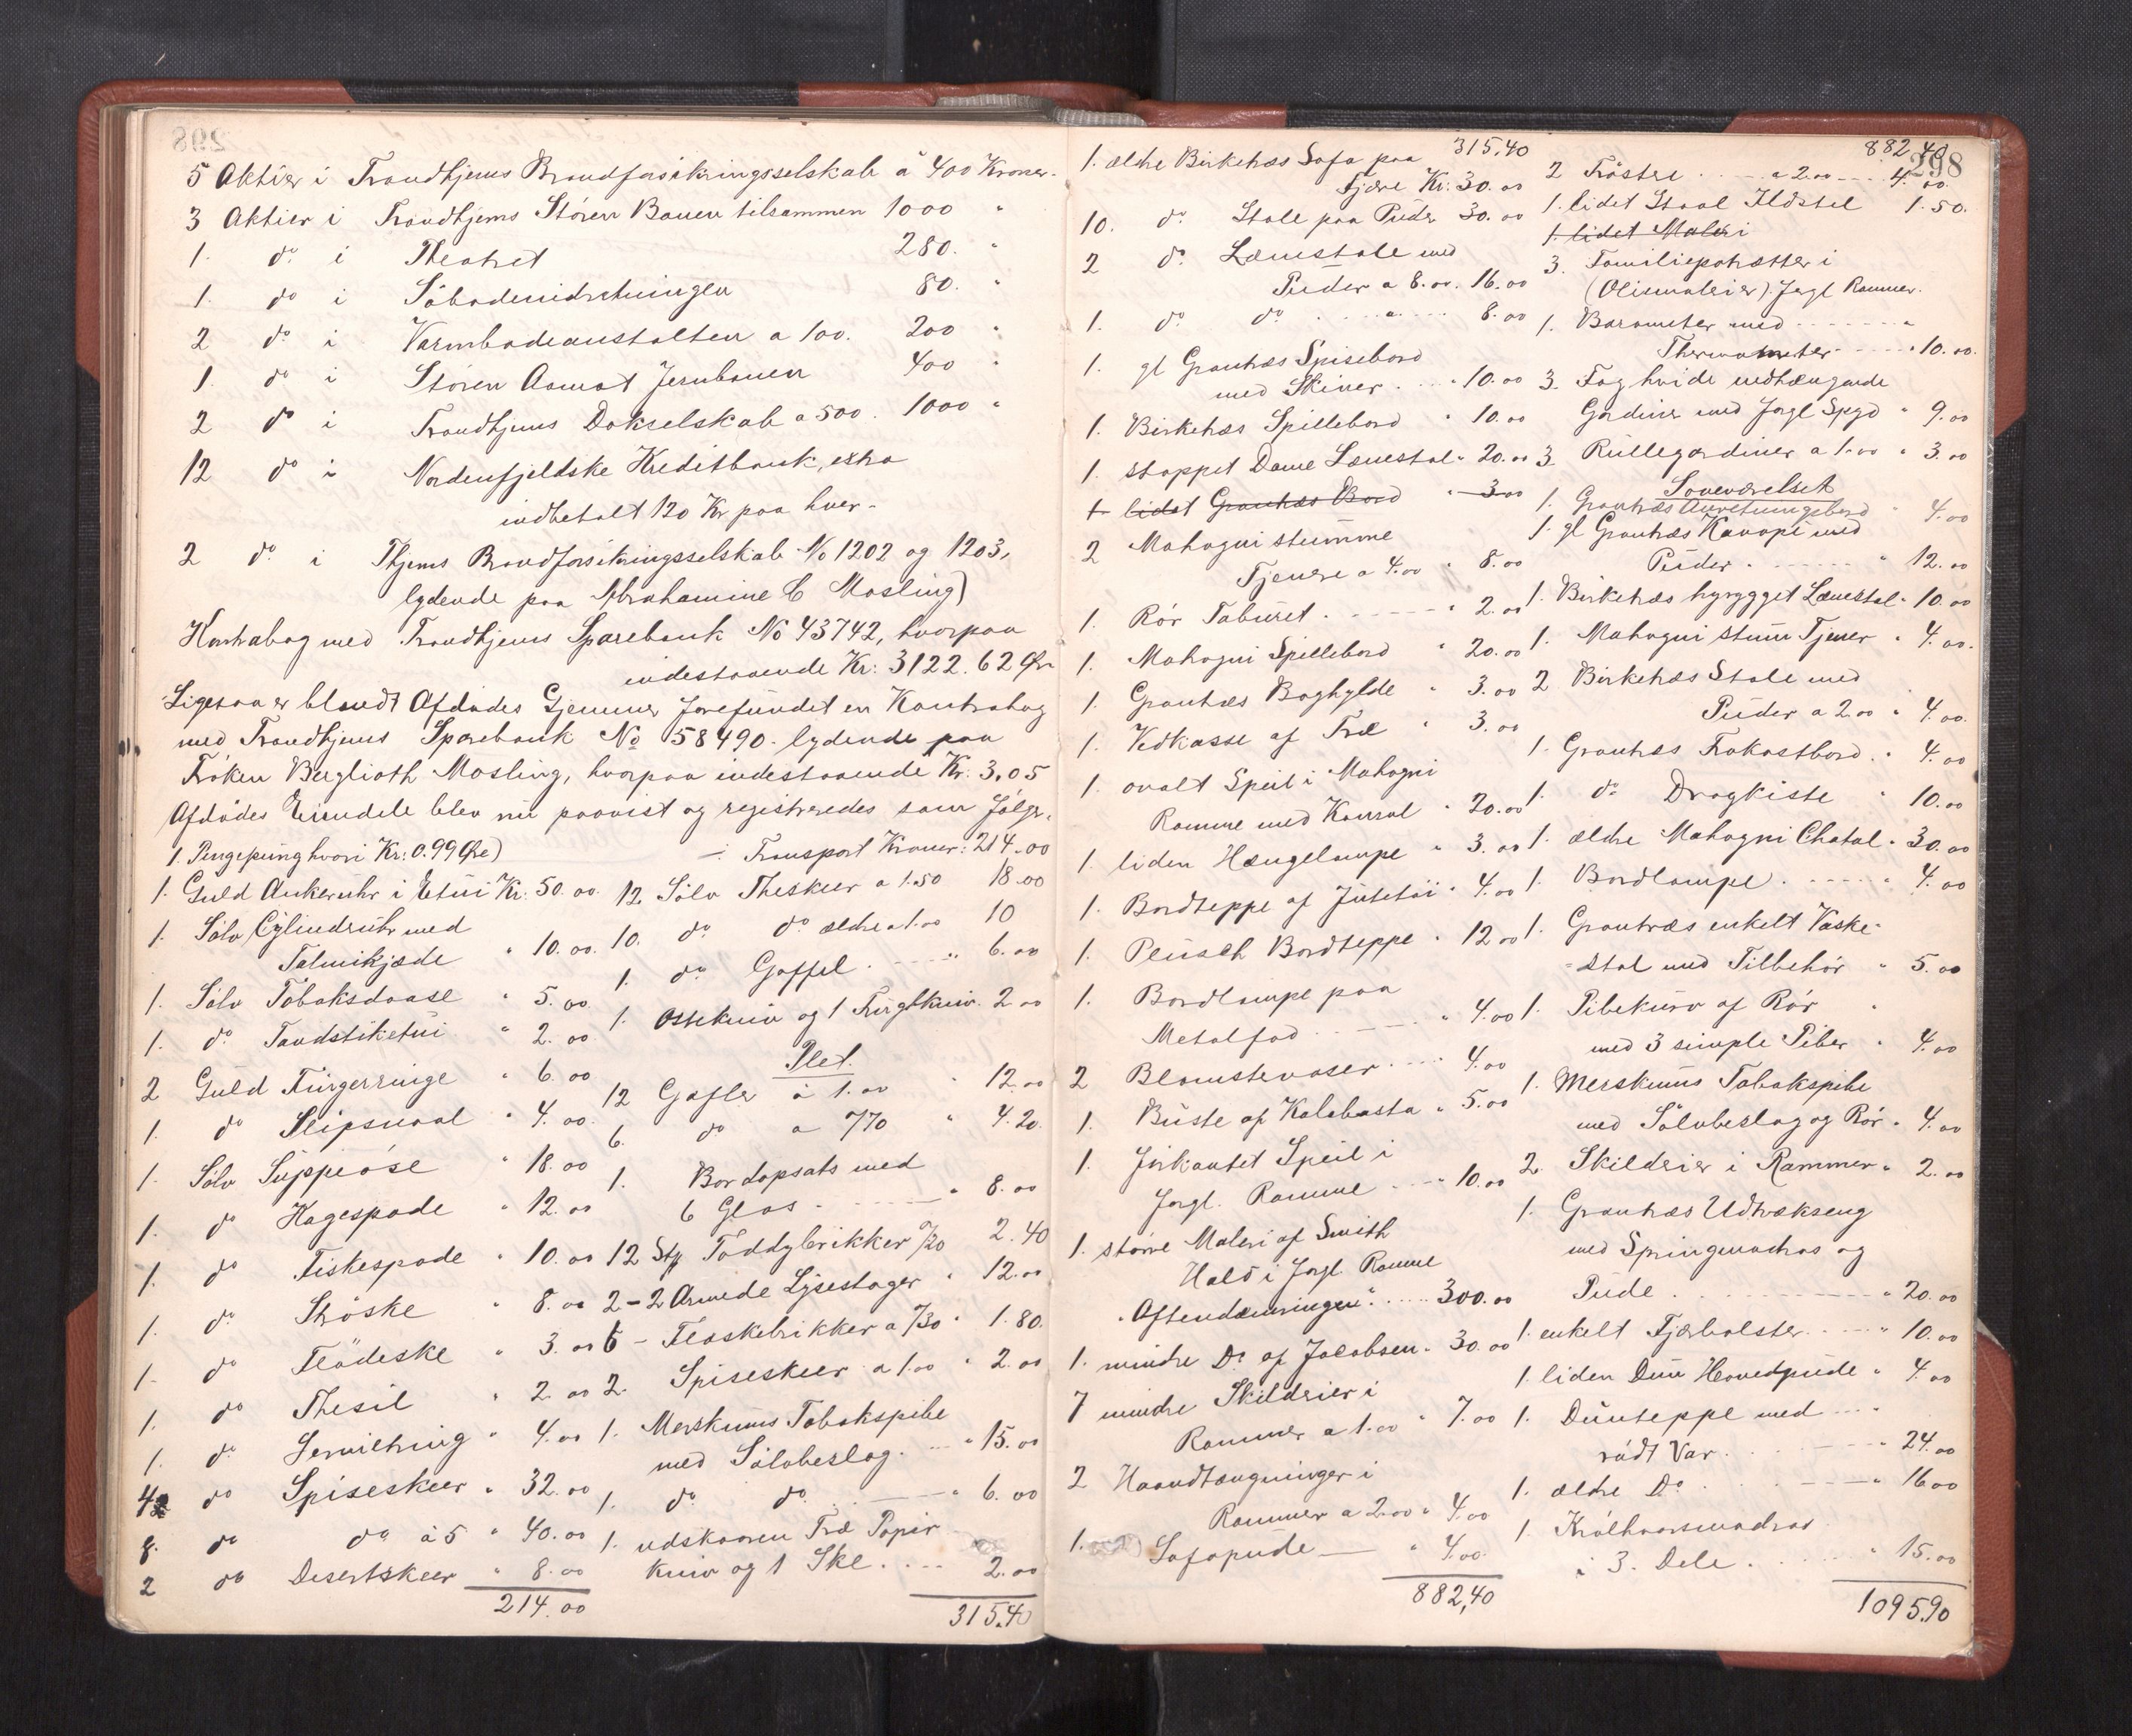 5 Aktier i Trondhjems Brandforsikringsselskab à 400 Kroner.
3 Aktier i Trondhjems Stören Banen tilsammen 1000 "
1. do i Theatret 280. "
1. do i Söbadeindretningen 80. "
2 do i Varmbadeanstalten a 100. 200 "
1. do i Stören Aamot Jernbanen 400 "
2 do i Trondhjems Dokselskab a 500. 1000 "
12 do i Nordenfjeldske Kreditbank, extra
indbetalt 120 Kr paa hver.
2 do i Thjems Brandforsikringsselskab No 1202 og 1203,
lydende paa Abrahamine C Mosling)
Kontrabog med Trondhjems Sparebank No 43742, hvorpaa
indestaaende Kr: 3122.62 Øre
Ligesaa er blandt Afdödes Gjemmer forefundet en Kontrabog
med Trondhjems Sparebank No 58490. lydende paa
Fröken Berglioth Mosling, hvorpaa indestaaende Kr: 3.05
Afdödes Eiendele blev nu paavist og registreredes som fölger.
1. Pengepung hvori Kr: 0.99 Øre)
1. Guld Ankeruhr i Etui Kr: 50.00
1. Sölv Cylinderuhr med
Talmikjæde " 10.00.
1. Sölv Tobaksdaase " 5.00
1. do Tandstiketui " 2.00
2 Guld Fingerringe " 6.00
1. do Slipsnaal " 4.00.
1. Sölv Suppeöse " 18.00
1. do Kagespade " 12.00
1. do Fiskespade " 10.00
1. do Ströske " 8.00
1. do Flödeske " 3.00
1. do Thesil " 2.00
1. do Servietring " 4.00
do Spiseskeer " 32.00
8. do do à 5 " 40.00
2 do Desertskeer " 8.00
214.00
Transport Kroner: 214.00
12 Sölv Theskeer a 1.50 18.00
10. do do ældre a 1.00 10
1. do Gaffel " 6.00
1. Ostekniv og 1 Frugtkniv 2.00
Plet.
12 Gafler à 1.00 " 12.00
6. do a 7/70 " 4.20.
1. Bordopsats med
6 Glas " 8.00
12 Stk Toddybrikker 7/20 2.40
2 - 2 Armede Lysestager " 12.00
6 - Flaskebrikker a 7/30 " 1.80.
2. Spiseskeer a 1.00 " 2.00
1. Merskums Tobakspibe
med Sölvbeslag " 15.00
1. do do " 6.00
1. udskaaren Træ Papir
kniv og 1 Ske 2.00
315.40
315.40
1. ældre Birketræs Sofa paa
Fjære Kr: 30.00
10. do Stole paa Puder 30.00
2 do Lænestole med
Puder a 8.00. 16.00
1. do do " 8.00
1. gl Grantræs Spisebord
med Skiver " 10.00
1. Birketræs Spillebord " 10.00
1. stoppet Dame Lænestol " 20.00
1 lidet Grantræs Bord " 3.00
2 Mahogni stumme
Tjenere a 4.00 " 8.00
1. Rör Taburet " 2.00
1. Mahogni Spillebord " 20.00
1. Grantræs Boghylde " 3.00
1. Vedkasse af Træ " 3.00
1. ovalt Speil i Mahogni
Ramme med Konsol " 20.00
1 liden Hængelampe " 3.00
1. Bordteppe af Jutetöi " 4.00
1. Plüsch Bordteppe " 12.00
1. Bordlampe paa
Metalfod " 4.00
2 Blomstervaser " 4.00
1. Buste af Kalebasta " 5.00
1. firkantet Speil i
forgl. Ramme " 10.00
1. större Maleri af Smith
Hald i forgl. Ramme
"Aftendæmringen". 300.00
1. mindre Do af Jacobsen " 30.00
7 mindre Skilderier i
Rammer a 1.00 " 7.00
2 Haandtægninger i
Rammer a 2.00 " 4.00
1. Sofapude " 4.00.
882,40
882,40
298
2 Tröstre " a 2.00 4.00
1. lidet Staal Ildstel 1.50.
1. lidet Maleri
3. Familieportrætter i
(Oliemalerier) forgl Rammer.
1. Barometer med "
Thermometer " 10.00.
3. Fag hvide nedhængende
Gardiner med forgl Spyd " 9.00
3. Rullegardiner a 1.00 " 3.00
Soveværelset
1. Grantræs Anretningsbord " 4.00
1. gl Grantræs Kanape med
Puder " 12.00
1. Birketræs hyrygget Lænestol " 10.00
1. Mahogni stum Tjener " 4.00.
2 Birketræs Stole med
Puder a 2.00 " 4.00.
1. Grantræs Frokostbord " 4.00
1. do Dragkiste " 10.00
1. ældre Mahogni Chatol " 30.00
1. Bordlampe " 4.00
1. Grantræs enkelt Vaske-
=stol med Tilbehör " 5.00
1. Pibekurv af Rör "
med 3 simple Piber " 4.00
1. Merskums Tobakspibe
med Sölvbeslag og Rör " 4.00
2. Skilderier i Rammer " 2.00
1. Grantræs Udtrækseng
med Springmadras og
Pude " 20.00
1. enkelt Fjærbolster " 10.00
1. liden Dun Hovedpude " 4.00
1. Dunteppe med "
rödt Var " 24.00
1. ældre Do " 16.00
1. Krölhaarsmadras
i 3. Dele " 15.00
1095.90